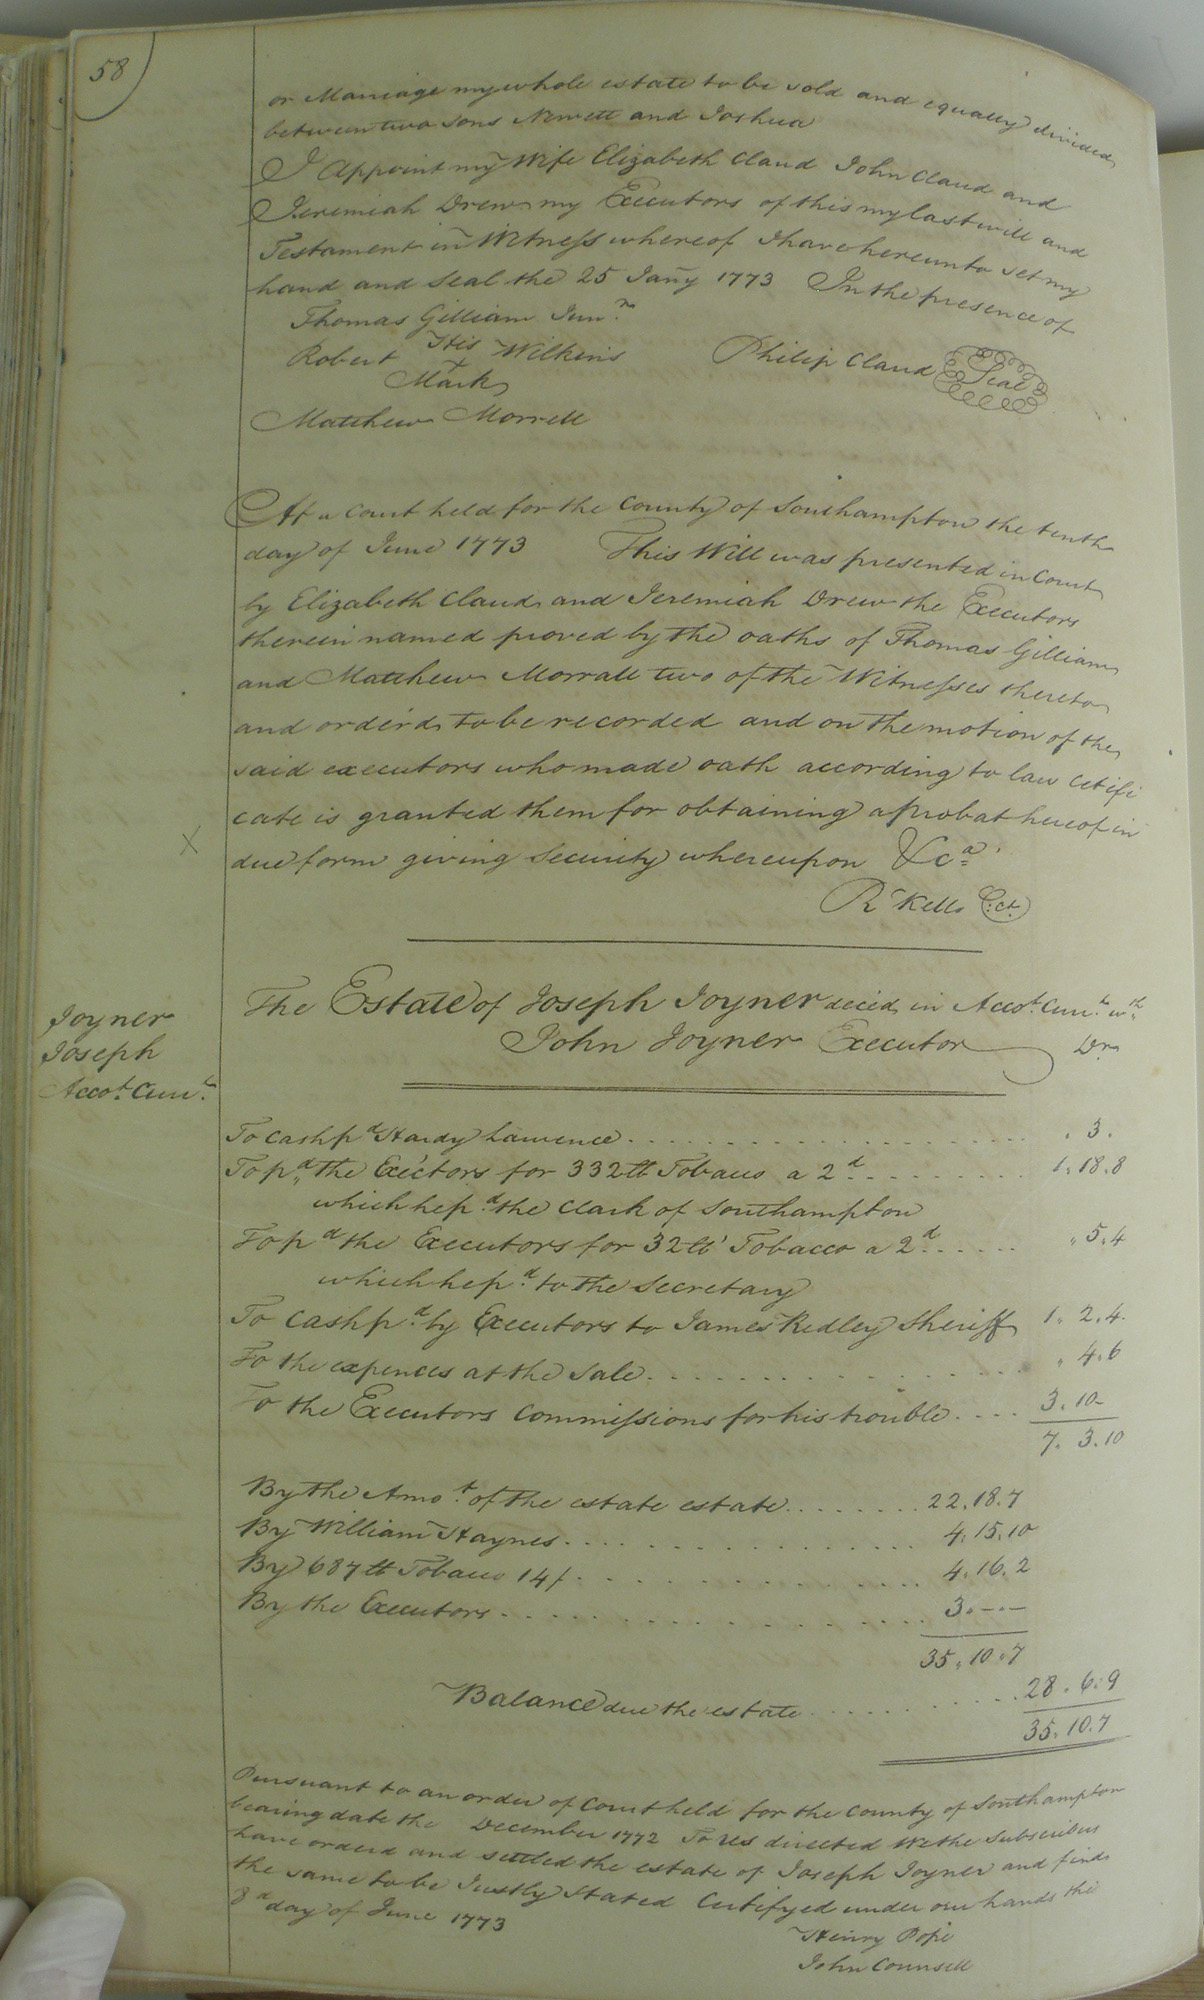 58
or Marriage my whole estate to be sold and equally divided
between two sons Newett and Joshua
I Appoint my Wife Elizabeth Claud John Claud and
Jeremiah Drew my Executors of this my last will and
Testament in Witness whereof I have hereunto set my
hand and Seal the 25 Jany 1773 In the presence of
Thomas Gilliam Junr.
Robert His Wilkins Philip Claud Seal
+
Mark
Matthew Morrell
At a Court held for the County of Southampton the tenth
day of June 1773 This Will was presented in Court
by Elizabeth Claud and Jeremiah Drew the Executors
therein named proved by the oaths of Thomas Gilliam
and Matthew Morrall two of the Witnesses thereto
and order'd to be recorded and on the motion of the
said executors who made oath according to law cetifi
cate is granted them for obtaining a probat hereof in
X
due form giving Security whereupon &ca.
R Kells C:Ct.
Joyner
Joseph
Accot. Curt.
The Estate of Joseph Joyner deced, in Accot. Curt. wth
John Joyner Executor Dr
To Cash pd Hardy Lawrence . 3 .
To pd. the Exectors for 332 tt Tobacco a 2d 1. 18. 8
which he pd. the Clark of Southampton
To pd the Executors for 32 tt Tobacco a 2d. " 5. 4
which he pd. to the Secretary
To Cash pd. by Executors to James Ridley Sheriff 1. 2. 4.
To the expences at the Sale " 4. 6
To the Executors Commissions for his trouble 3. 10 -
7. 3. 10
By the Amot. of the estate estate 22. 18. 7
By William Haynes 4. 15. 10
By 687 tt Tobacco 14/ 4. 16. 2
By the Executors 3. - -
35. 10. 7
Balance due the estate 28. 6. 9
35. 10. 7
Pursuant to an order of Court held for the County of Southampton
bearing date the December 1772 To us directed We the Subscribers
have orderd and settled the estate of Joseph Joyner and find
the same to be Justly Stated Certifyed under our hands this
8d day of June 1773
Henry Pope
John Counsell